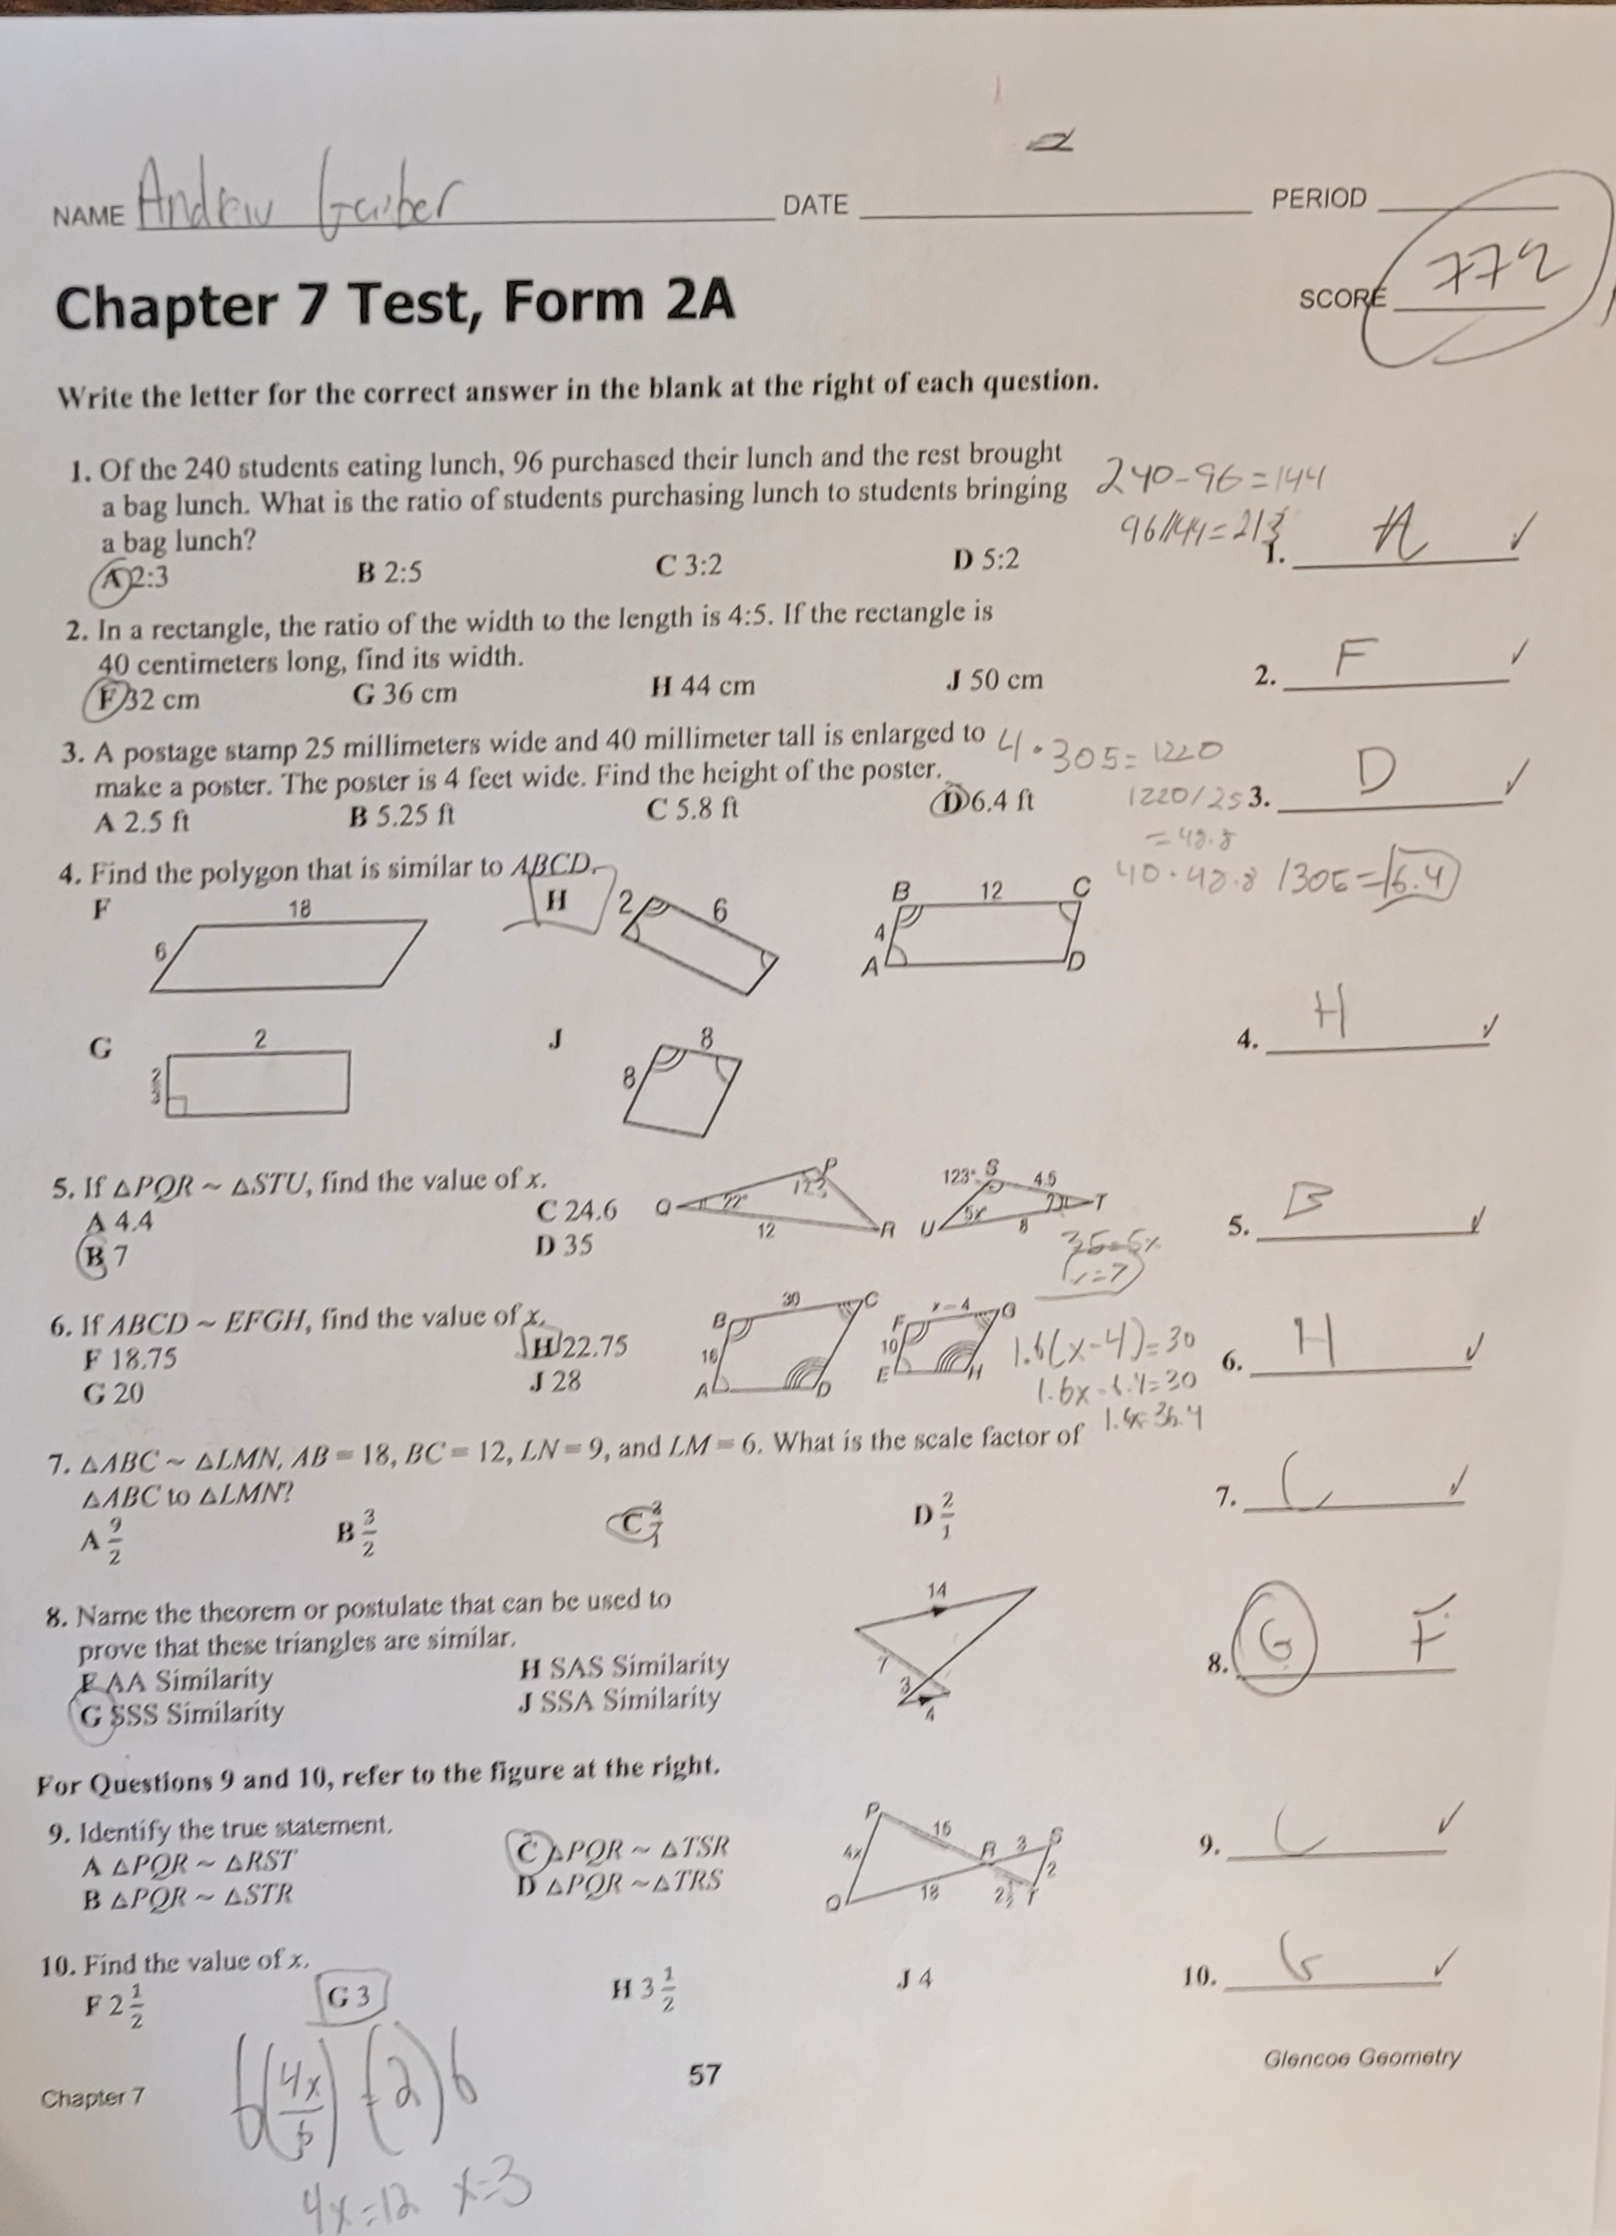 NAME Andrew Garber DATE PERIOD
SCORE 772
Chapter 7 Test, Form 2A
Write the letter for the correct answer in the blank at the right of each question.
1. Of the 240 students eating lunch, 96 purchased their lunch and the rest brought
a bag lunch. What is the ratio of students purchasing lunch to students bringing
a bag lunch?
240-96=144
96/144=2/3
A 2:3 B 2:5 C 3:2 D 5:2
1. A ✓
2. In a rectangle, the ratio of the width to the length is 4:5. If the rectangle is
40 centimeters long, find its width.
F 32 cm G 36 cm H 44 cm J 50 cm
2. F ✓
3. A postage stamp 25 millimeters wide and 40 millimeter tall is enlarged to
make a poster. The poster is 4 feet wide. Find the height of the poster.
A 2.5 ft B 5.25 ft C 5.8 ft D 6.4 ft
4·305=1220
1220/25
=48.8
40·48.8/305=6.4
3. D ✓
4. Find the polygon that is similar to ABCD.
F 18 6
H 2 6
B 12 C
4
A D
G 2
2/3
J 8
8
4. H ✓
5. If △PQR ~ △STU, find the value of x.
A 4.4 C 24.6
B 7 D 35
P 123 Q 22° 12 R
123° S 4.5 T U 5x° 8
35=5x
x=7
5. B ✓
6. If ABCD ~ EFGH, find the value of x.
F 18.75 H 22.75
G 20 J 28
B 30 C 16 A D
F x-4 G 10 E H
1.6(x-4)=30
1.6x-6.4=30
1.6x=36.4
6. H ✓
7. △ABC ~ △LMN, AB = 18, BC = 12, LN = 9, and LM = 6. What is the scale factor of
△ABC to △LMN?
A 9/2 B 3/2 C D 2/1
7. C ✓
8. Name the theorem or postulate that can be used to
prove that these triangles are similar.
F AA Similarity H SAS Similarity
G SSS Similarity J SSA Similarity
14
7
3
4
8. G F
For Questions 9 and 10, refer to the figure at the right.
9. Identify the true statement.
A △PQR ~ △RST C △PQR ~ △TSR
B △PQR ~ △STR D △PQR ~ △TRS
P 15 R 3 S
4x 2
Q 18 2 1/2 T
9. C ✓
10. Find the value of x.
F 2 1/2 G 3 H 3 1/2 J 4
10. G ✓
6(4x/6)=(2)6
4x=12 x=3
Chapter 7 57 Glencoe Geometry